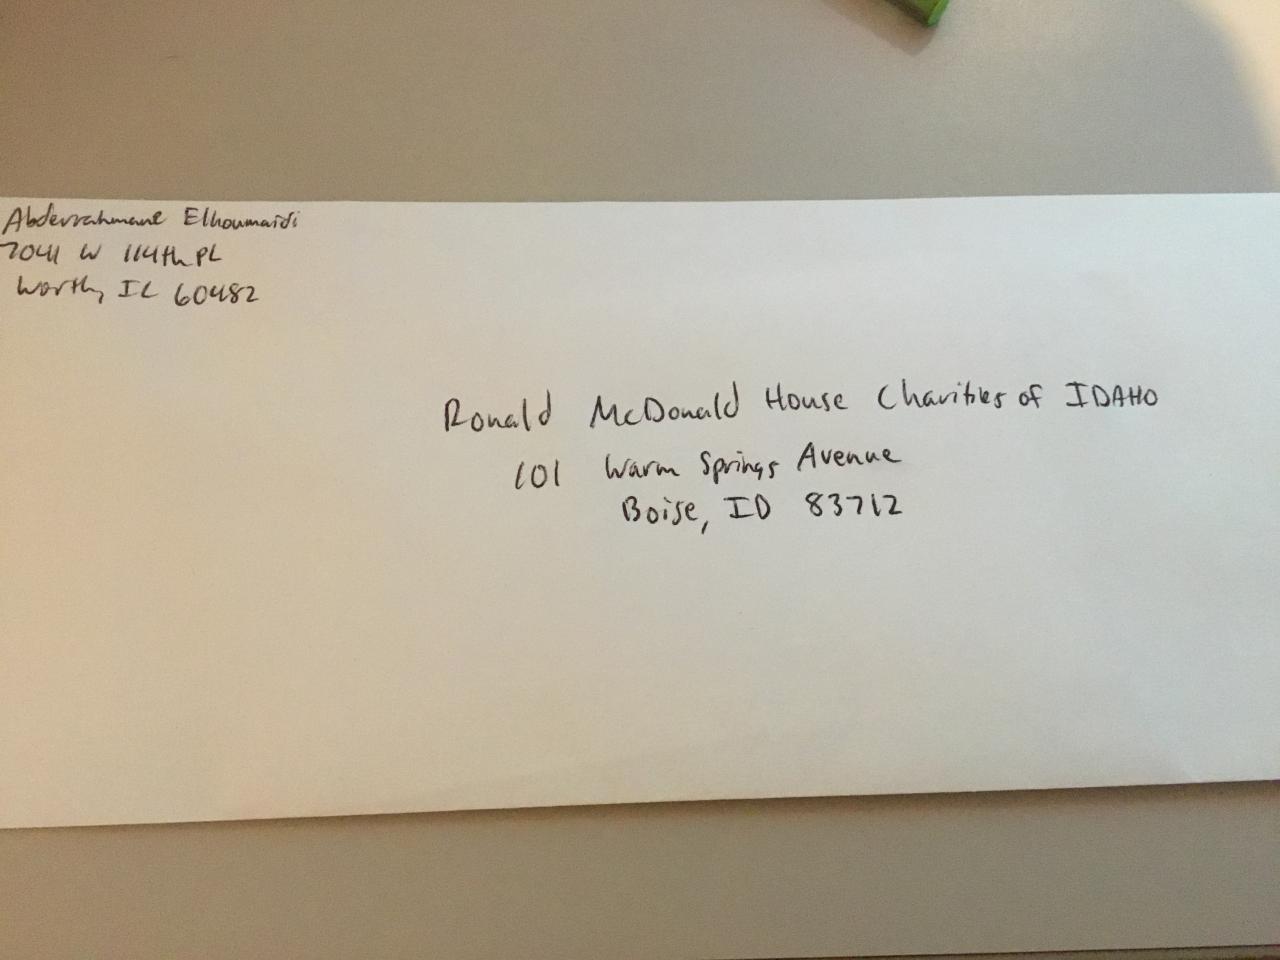 Abderrahmane Elhoumaidi
7041 W 114th PL
Worth, IL 60482
Ronald McDonald House Charities of IDAHO
101 Warm Springs Avenue
Boise, ID 83712